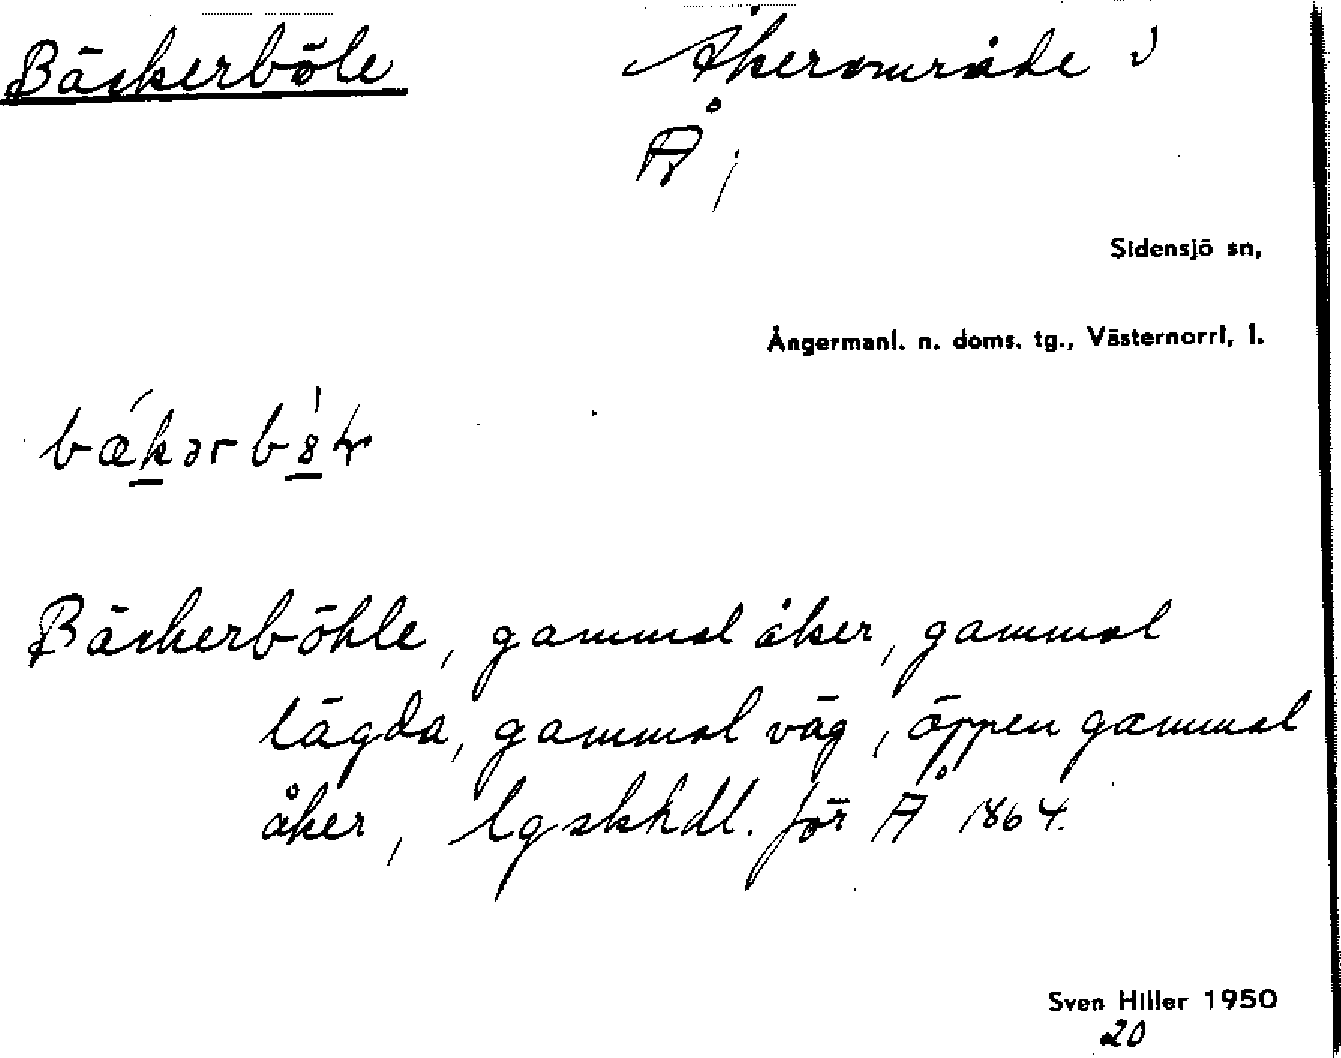 Bäckerböle
Åkerområde i
Å,
Sidensjö sn,
Ångermanl. n. doms. tg., Västernorrl. l.
Bäckerböhle, gammal åker, gammal
lägda, gammal väg, öppen gammal
åker, lgskhdl. för Å 1864.
Sven Hiller 1950
20